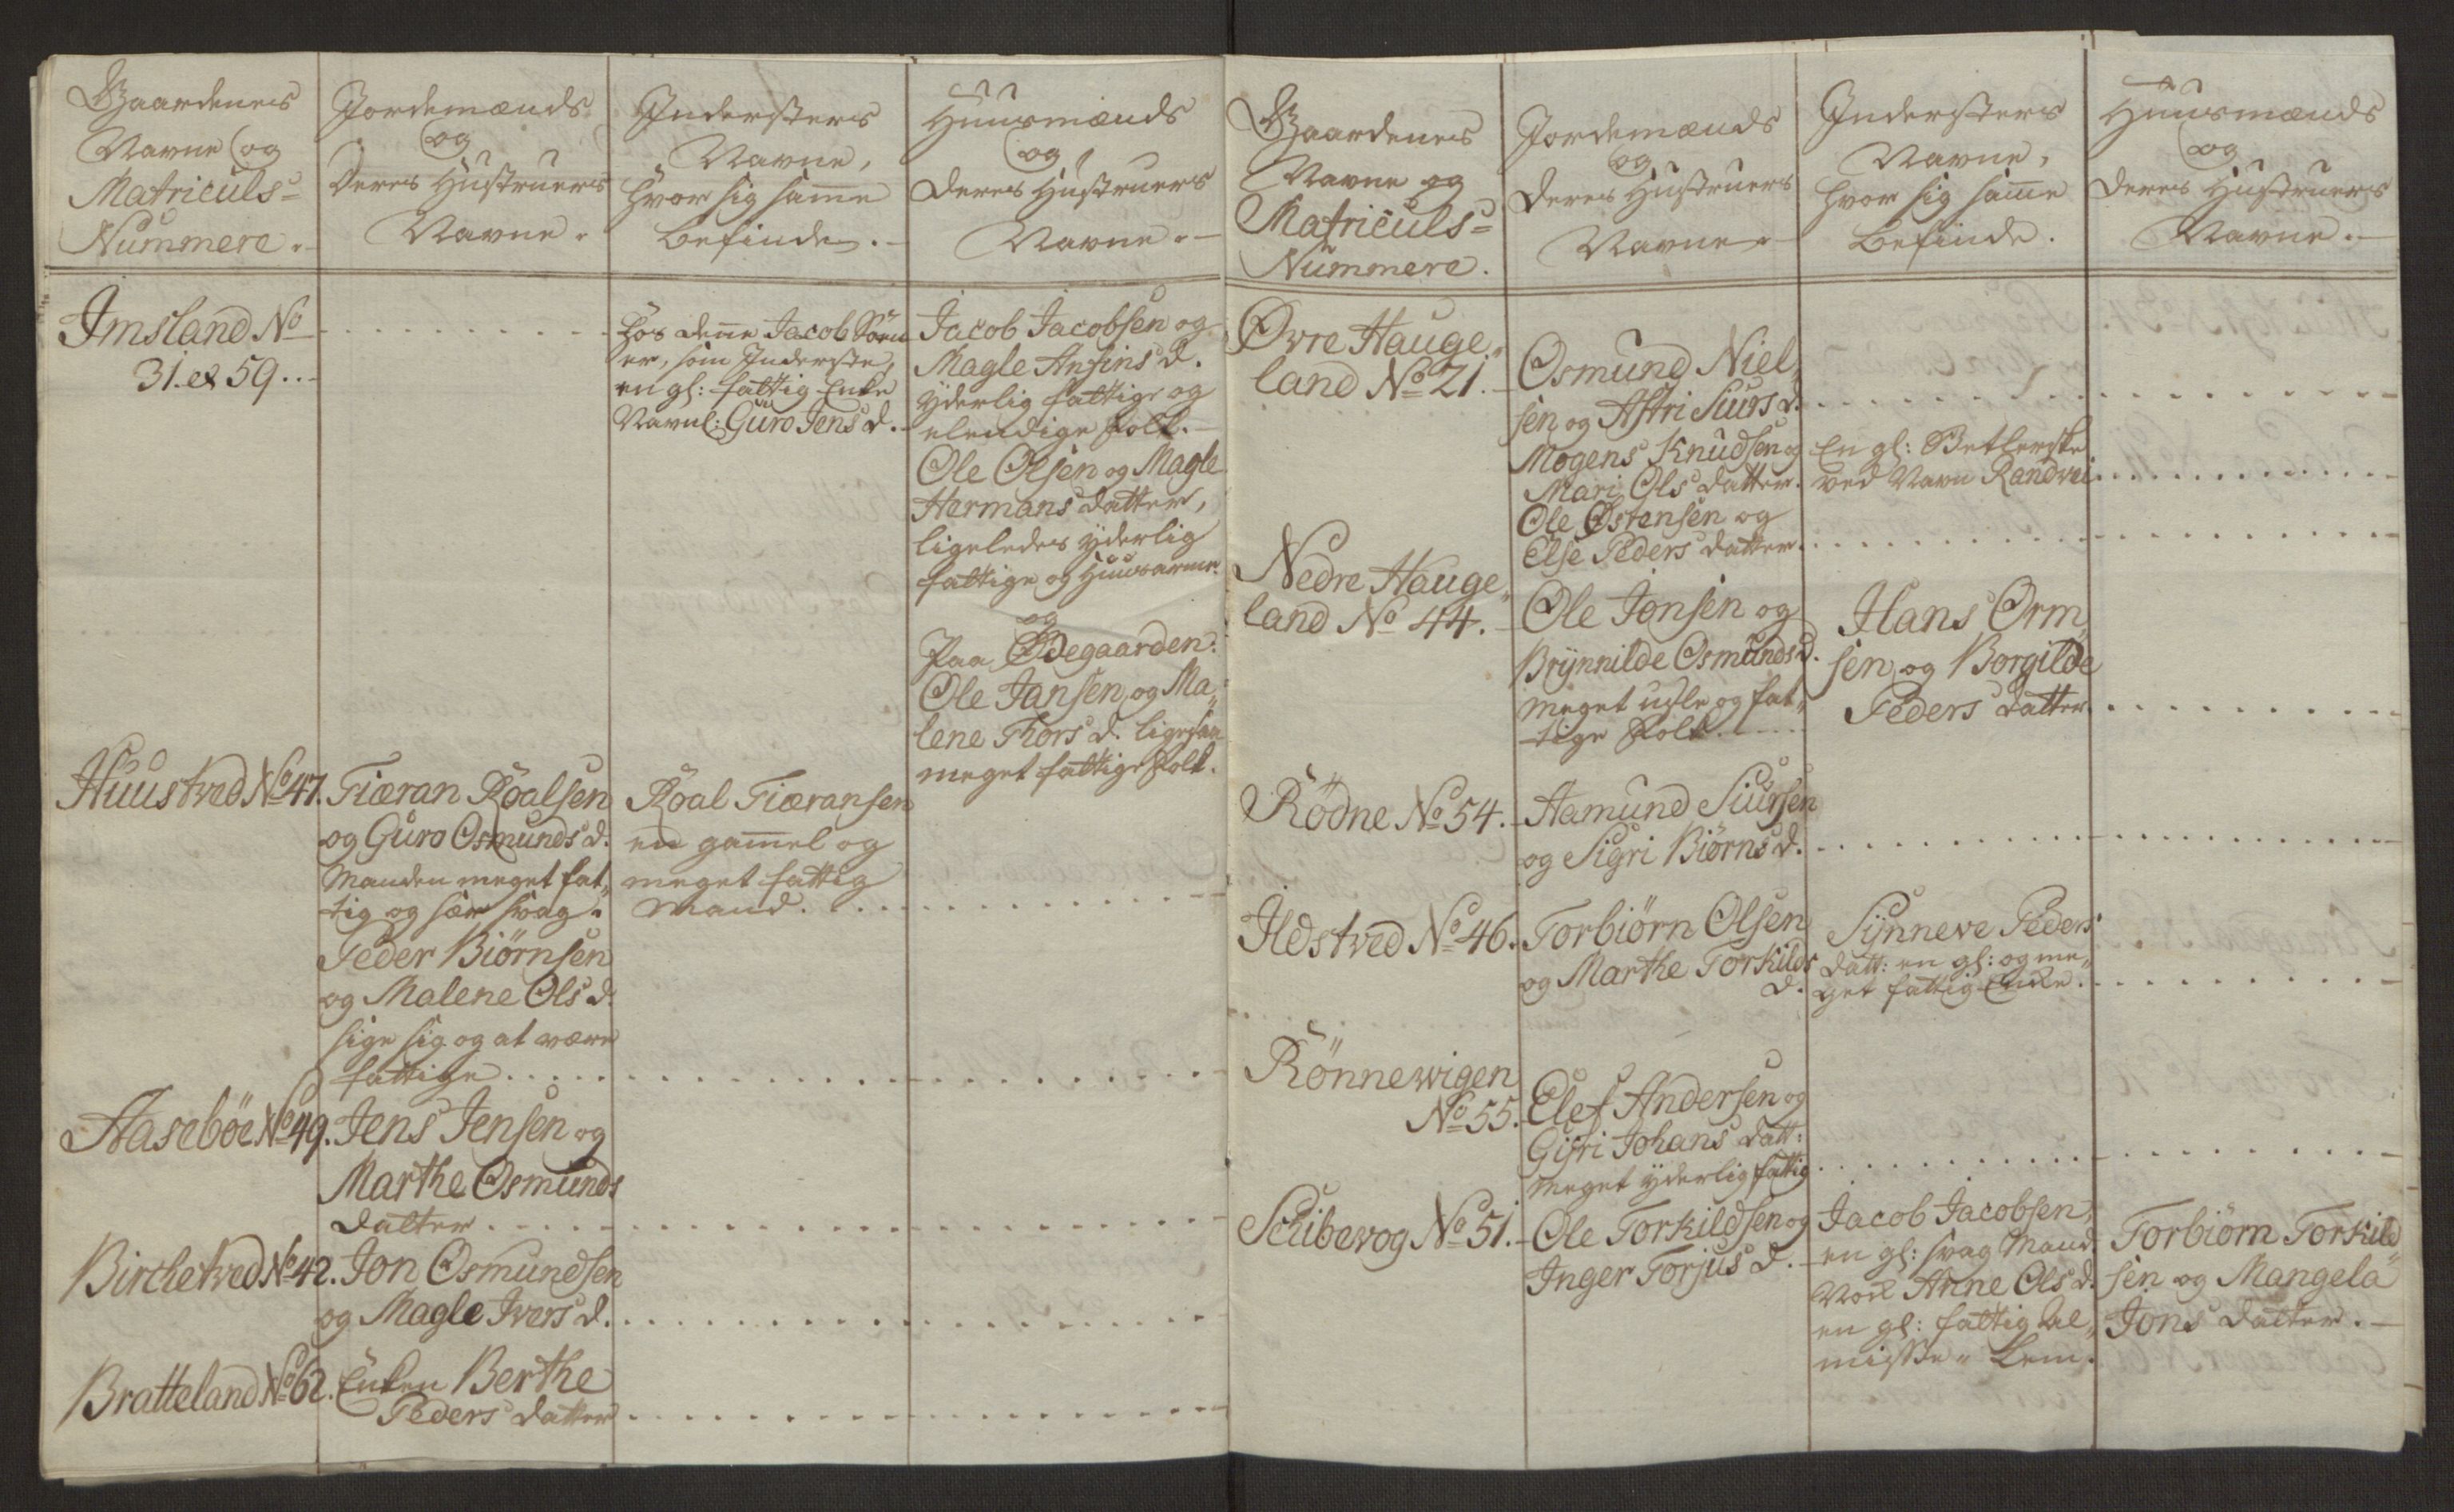 Gaardenes
Navne og
Matriculs-
Nummere.
Jordemænds
og
Deres Hustruers
Navne.
Indersters
Navne,
hvor sig same
befinde.
Huusmænds
og
deres Hustruers
Navne.
Imsland No
31. et 59.
hos dene Jacob
er, som Inderste,
en gl: fattig Enke
Navnl: Guro Jens d.
Jacob Jacobsen og
Magle Anfins d.
ÿderlig fattige og
elendige Folk.
Ole Olsen og Magle
Hermans datter,
ligeledes ÿderlig
fattige og Huusarme.
og
Paa Ødegaarden:
Ole Jansen og Ma„
lene Thors d. ligesaa
meget fattige Folk.
Huustved No 47.
Tiæran Roalsen
og Guro Osmunds d.
Manden meget fat„
tig og svag.
Peder Biörnsen
og Malene Ols d.
sige sig og at være
fattige.
Roal Tiæransen
en gamel og
meget fattig
Mand.
Aaseböe No 49.
Jens Jensen og
Marthe Osmunds
datter.
Birchetved No 42.
Jon Osmundsen
og Magle Ivers d.
Bratteland No 62.
Enken Berthe
Peders datter
Gaardenes
Navne og
Matriculs-
Nummere.
Jordemænds
og
Deres Hustruers
Navne.
Indersters
Navne,
hvor sig same
befinde.
Huusmænds
og
deres Hustruers
Navne.
Øvre Hauge„
land No 21.
Osmund Niel„
sen og Astri Siurs d.
Mogens Knudsen og
Mari Ols datter.
Ole Østensen og
Else Peders datter.
En gl: Betlerske
ved Navn Randvei
Nedre Hauge„
land No 44.
Ole Jonsen og
Brÿnnilde Osmunds d.
meget usle og fat„
tige Folk.
Hans Orm„
sen og Borgilde
Peders datter.
Rödne No 54.
Aamund Siursen
og Sigri Biörns d.
Ildstved No 46.
Torbiörn Olsen
og Marthe Torkilds
d.
Sÿnneve Peders
datt: en gl: og me„
get fattig Enke.
Rönnewigen
No 55.
Elef Andersen og
Gisri Johans datt:
meget ÿderlig fattig
Schibevog No 51.
Ole Torkildsen og
Inger Torjus d.
Jacob Jacobsen,
en gl: svag Mand
Anne Ols d.
en gl: fattig Al„
misse-Lem.
Torbiörn Torkild„
sen og Mangela
Jons datter.